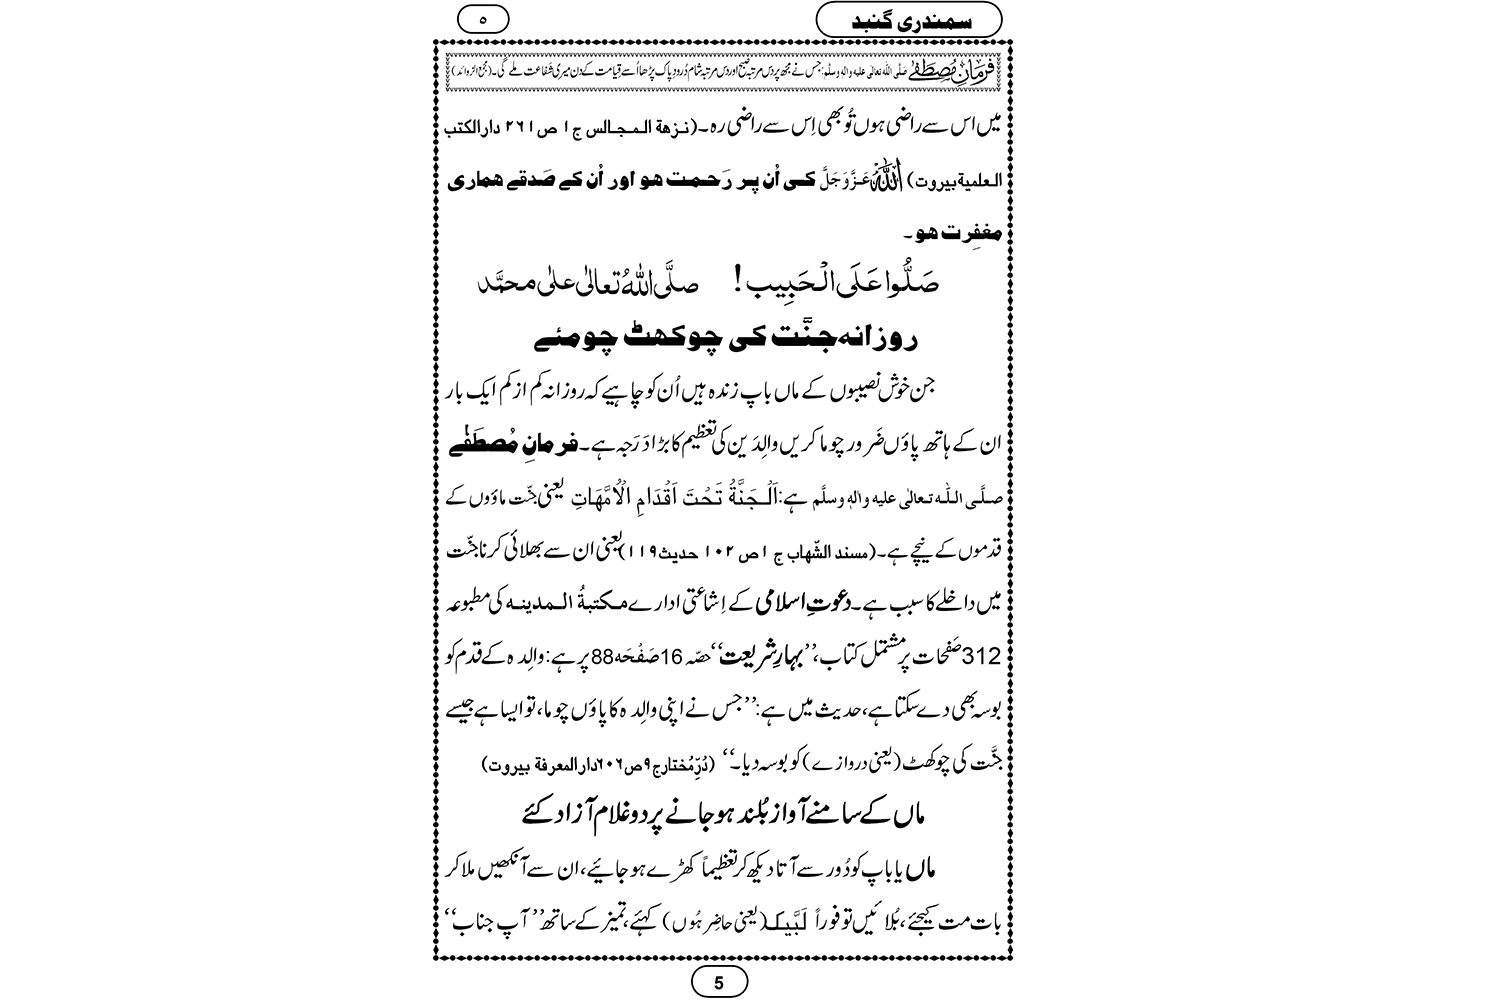 سمندری گنبد
٥
فرمانِ مُصطَفٰے صلَّی اللہ تعالٰی علیہ واٰلہٖ وسلَّم: جس نے مجھ پر دس مرتبہ صبح اور دس مرتبہ شام دُرود پاک پڑھا اُسے قِیامت کے دن میری شَفاعت ملے گی۔ (مجمع الزوائد)
میں اس سے راضی ہوں تُو بھی اِس سے راضی رہ۔ (نزھة المجالس ج١ ص٢٦١ دارالکتب
العلمیة بیروت) اللہ عَزَّوَجَلَّ کی اُن پر رَحمت ھو اور اُن کے صَدقے ھماری
مغفِرت ھو۔
صَلُّوا عَلَی الْحَبِیب! صلَّی اللّٰہُ تعالٰی علٰی محمَّد
روزانہ جنَّت کی چوکھٹ چومئے
جن خوش نصیبوں کے ماں باپ زندہ ہیں اُن کو چاہیے کہ روزانہ کم از کم ایک بار
ان کے ہاتھ پاؤں ضَرور چوما کریں والِدَین کی تعظیم کا بڑا دَرَجہ ہے۔ فرمانِ مُصطَفٰے
صلَّی اللّٰہ تعالٰی علیہ واٰلہٖ وسلَّم ہے: اَلْجَنَّةُ تَحْتَ اَقْدَامِ الْاُمَّھَاتِ یعنی جنّت ماؤوں کے
قدموں کے نیچے ہے۔ (مسند الشّھاب ج ١ ص ١٠٢ حدیث ١١٩) یعنی ان سے بھلائی کرنا جنّت
میں داخلے کا سبب ہے۔ دعوتِ اسلامی کے اِشاعتی ادارے مکتبةُ المدینہ کی مطبوعہ
312 صَفحات پر مشتمل کتاب، ’’بہارِ شریعت‘‘ حصّہ 16 صَفْحَہ 88 پر ہے: والِدہ کے قدم کو
بوسہ بھی دے سکتا ہے، حدیث میں ہے: ’’جس نے اپنی والِدہ کا پاؤں چوما، تو ایسا ہے جیسے
جنَّت کی چوکھٹ (یعنی دروازے) کو بوسہ دیا۔‘‘ (دُرِّمُختار ج٩ ص٦٠٦ دارالمعرفة بیروت)
ماں کے سامنے آواز بُلند ہو جانے پر دو غلام آزاد کئے
ماں یا باپ کو دُور سے آتا دیکھ کر تعظیماً کھڑے ہو جائیے، ان سے آنکھیں ملا کر
بات مت کیجئے، بُلائیں تو فوراً لَبَّیک (یعنی حاضِر ہُوں) کہئے، تمیز کے ساتھ ’’آپ جناب‘‘
5